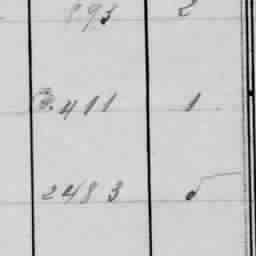 893 2
2411 1
2483 5